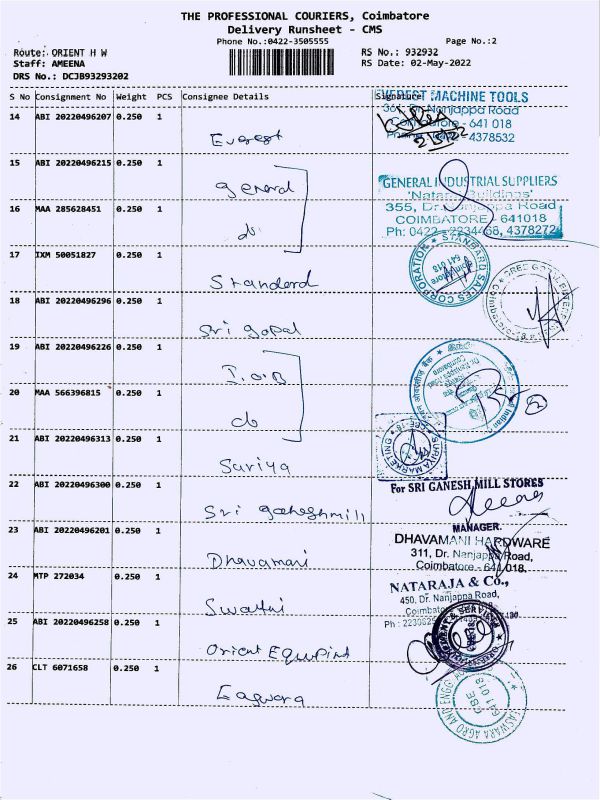 THE PROFESSIONAL COURIERS, Coimbatore
Delivery Runsheet - CMS
Phone No.:0422-3505555
Page No.:2
Route: ORIENT H W
RS No.: 932932
Staff: AMEENA
RS Date: 02-May-2022
DRS No.: DCJB93293202
S No Consignment No Weight PCS Consignee Details Signature
EVEREST MACHINE TOOLS
Nanjappa Road
Coimbatore - 641 018
4378532
14 ABI 20220496207 0.250 1
Everest
15 ABI 20220496215 0.250 1
General
GENERAL INDUSTRIAL SUPPLIERS
'Natan Buildings'
355, Dr. Nanjappa Road
COIMBATORE - 641018
Ph: 0422 - 2234468, 4378272
16 MAA 285628451 0.250 1
do
17 IXM 50051827 0.250 1
Standerd
STANDARD SALES CORPORATION
Coimbatore
641 018
18 ABI 20220496296 0.250 1
Sri gopal
19 ABI 20220496226 0.250 1
I.O.B
20 MAA 566396815 0.250 1
do
2
21 ABI 20220496313 0.250 1
Suriya
SURIYA MARKETING
22 ABI 20220496300 0.250 1
Sri ganeshmill
For SRI GANESH MILL STORES
MANAGER.
23 ABI 20220496201 0.250 1
Dhavamani
DHAVAMANI HARDWARE
311, Dr. Nanjappa Road,
Coimbatore - 641 018.
24 MTP 272034 0.250 1
Swathi
NATARAJA & Co.,
450, Dr. Nanjappa Road,
25 ABI 20220496258 0.250 1
Orient Equpint
26 CLT 6071658 0.250 1
Eagwara
EASWARA AGRO AND ENGG
CBE
641 018